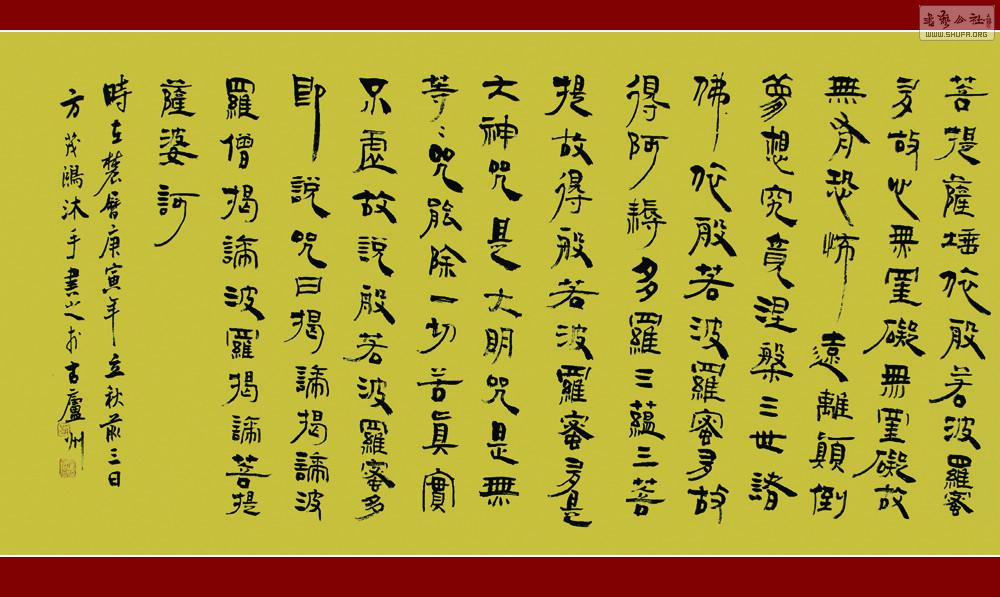 菩提薩埵依般若波羅蜜
多故心無罣礙無罣礙故
無有恐怖遠離顛倒
夢想究竟涅槃三世諸
佛依般若波羅蜜多故
得阿耨多羅三蘊三菩
提故得般若波羅蜜多是
大神咒是大明咒是無
等〻咒能除一切苦真實
不虛故說般若波羅蜜多
即說咒曰揭諦揭諦波
羅僧揭諦波羅揭諦菩提
薩婆訶
時在農曆庚寅年立秋前三日
方茂鴻沐手書之於古廬州
WWW.SHUFA.ORG